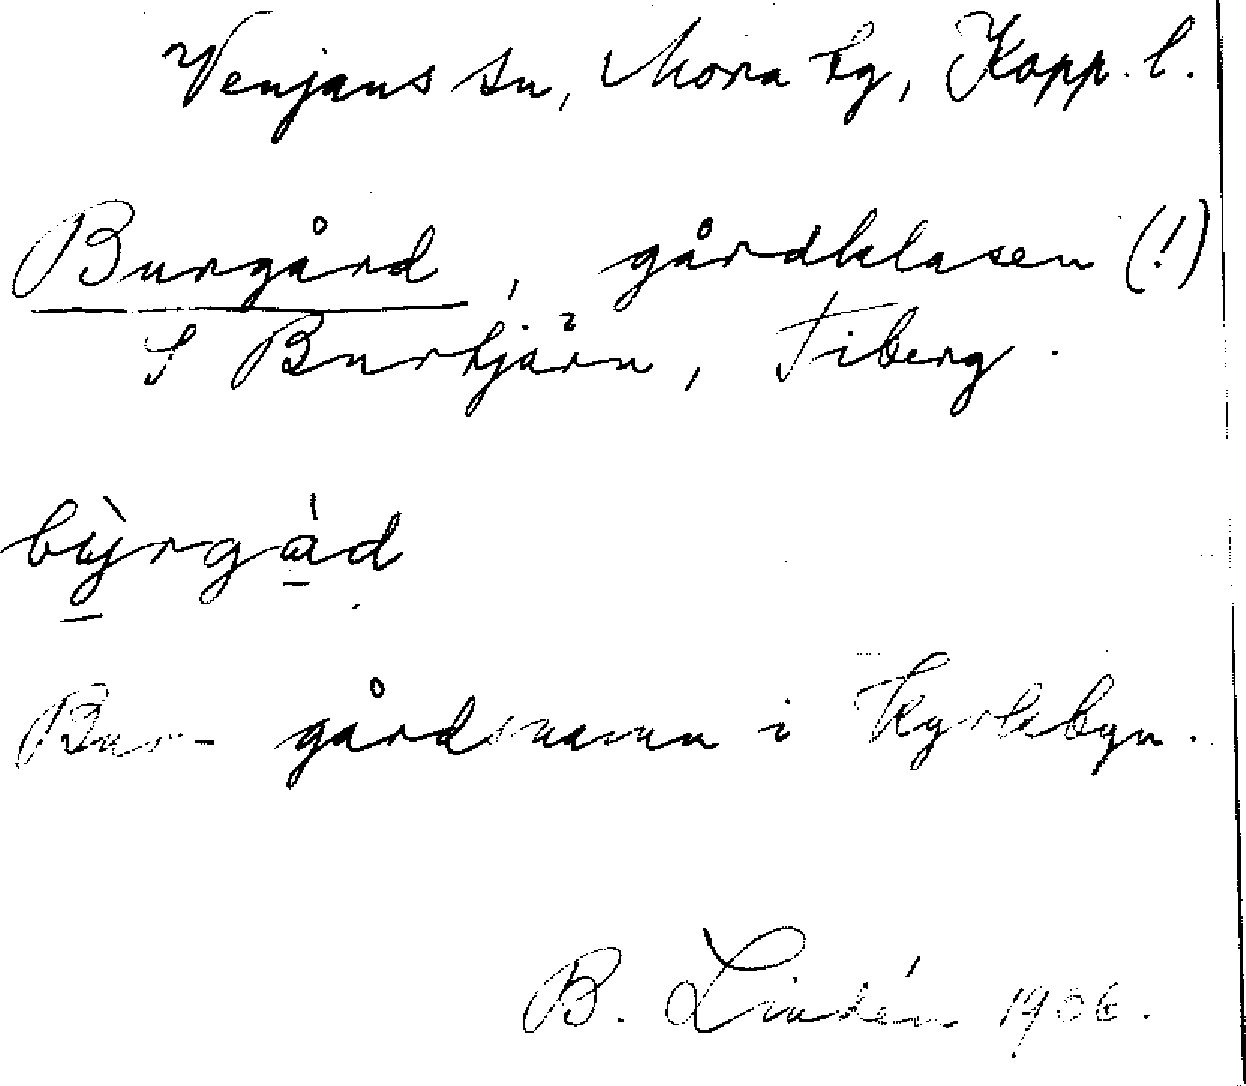 Venjans sn, Mora tg, Kopp. l.
Burgård, gårdklasen (!)
S Burtjärn, Tiberg.
bỳrgàd
Bur- gårdsnamn i Kyrkbyn.
B. Lindén 1906.